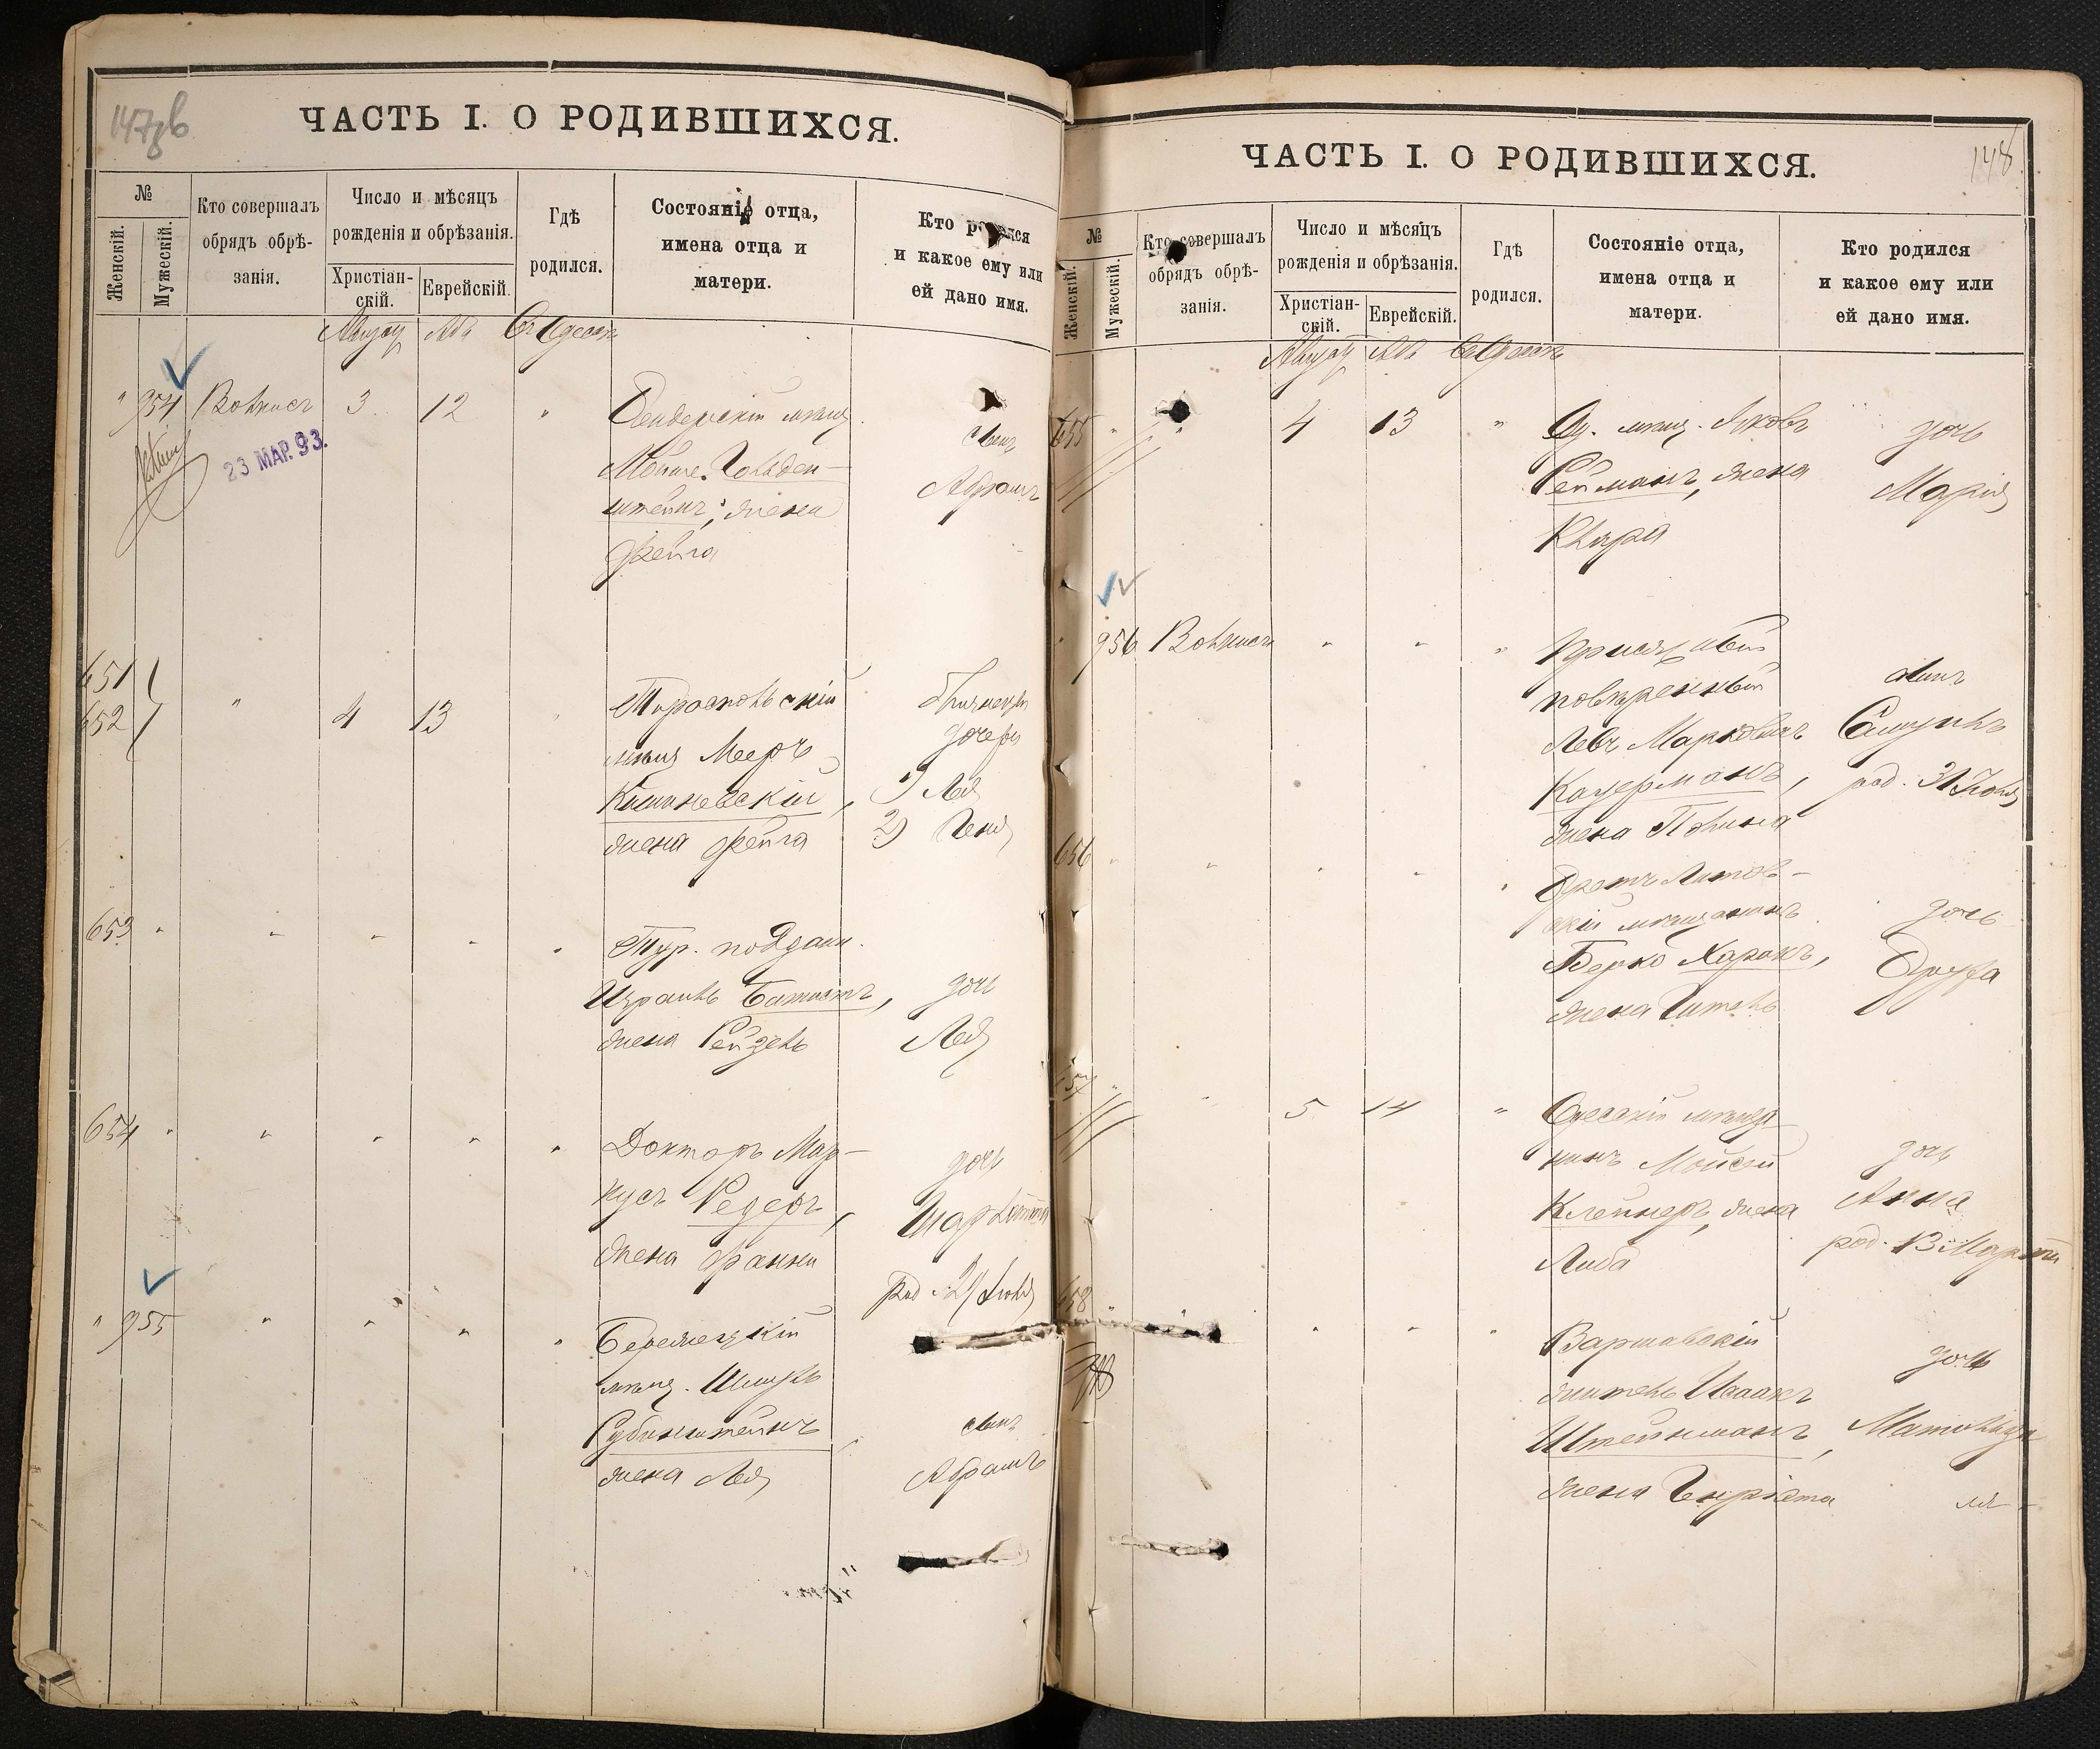 147об
ЧАСТЬ I. О РОДИВШИХСЯ.
№
Женскій.
Мужескій.
Кто совершалъ
обрядъ обрѣ-
занія.
Число и мѣсяцъ
рожденія и обрѣзанія.
Христіан-
скій.
Еврейскій.
Гдѣ
родился.
Состояніе отца,
имена отца и
матери.
Кто родился
и какое ему или
ей дано имя.
Августъ Абъ Въ Одессѣ
" 954 3 12 "
23 МАР. 93.
Бендерскій мѣщ.
Мойше Гольден-
штейнъ, жена
Фейга
сынъ
Абрамъ
651
652
" 4 13
Тираспольскій
мѣщ Мееръ
Кишиневскій,
жена Фейга
близнецы
дочери
1) Лея
2) Геня
653 " " " " "
Тур. поддан.
Израиль Батистъ,
жена Рейзель
дочь
Лея
654 " " " " "
Докторъ Мар-
кусъ Редеръ,
жена Фанни
дочь
Шарлотта
род. 21 Іюля
" 955 " " " "
Бережецкій
мѣщ. Шмуль
Рубинштейнъ
жена Лея
сынъ
Абрамъ
148
ЧАСТЬ I. О РОДИВШИХСЯ.
№
Женскій.
Мужескій.
Кто совершалъ
обрядъ обрѣ-
занія.
Число и мѣсяцъ
рожденія и обрѣзанія.
Христіан-
скій.
Еврейскій.
Гдѣ
родился.
Состояніе отца,
имена отца и
матери.
Кто родился
и какое ему или
ей дано имя.
Августъ Абъ Въ Одессѣ
655 " " 4 13 "
Од. мѣщ. Яковъ
Рейманъ, жена
Клара
дочь
Марія
956 " " "
Присяжный
повѣренный
Левъ Марковичъ
Кауерманъ,
жена Полина
сынъ
Самуилъ
род. 31 Іюля
656 " " " " "
Брестъ Литов-
скій мѣщанинъ
Берко Харакъ,
жена Гитель
дочь
657 " " 5 14 "
Одесскій мѣща
нинъ Мойсей
Клейнеръ, жена
Либа
дочь
Анна
род. 13 Марта
658 " " " " "
Варшавскій
житель Исаакъ
Штейнманъ,
жена Генріета
дочь
Матильда